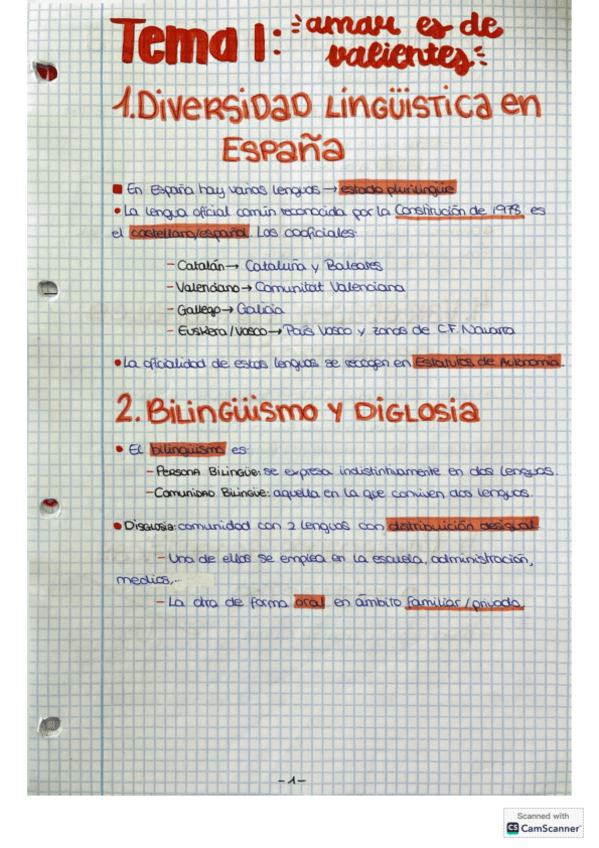 Tema 1: amar es de
valientes.
1. Diversidad Lingüística en
España
En España hay varias lenguas → estado plurilingüe
• La lengua oficial común reconocida por la Constitución de 1978 es
el castellano/español. Las cooficiales:
- Catalán → Cataluña y Baleares
- Valenciano → Comunitat Valenciana
- Gallego → Galicia
- Euskera/Vasco → País Vasco y zonas de C.F. Navarra
• La oficialidad de estas lenguas se recogen en Estatutos de Autonomía.
2. Bilingüismo y Diglosia
• El bilingüismo es:
- Persona Bilingüe: se expresa indistintivamente en dos lenguas.
- Comunidad Bilingüe: aquella en la que conviven dos lenguas.
• Disglosia: comunidad con 2 lenguas con distribución desigual.
- Una de ellas se emplea en la escuela, administración,
medios,...
- La otra de forma oral en ámbito familiar/privado.
-1-
Scanned with
CS CamScanner